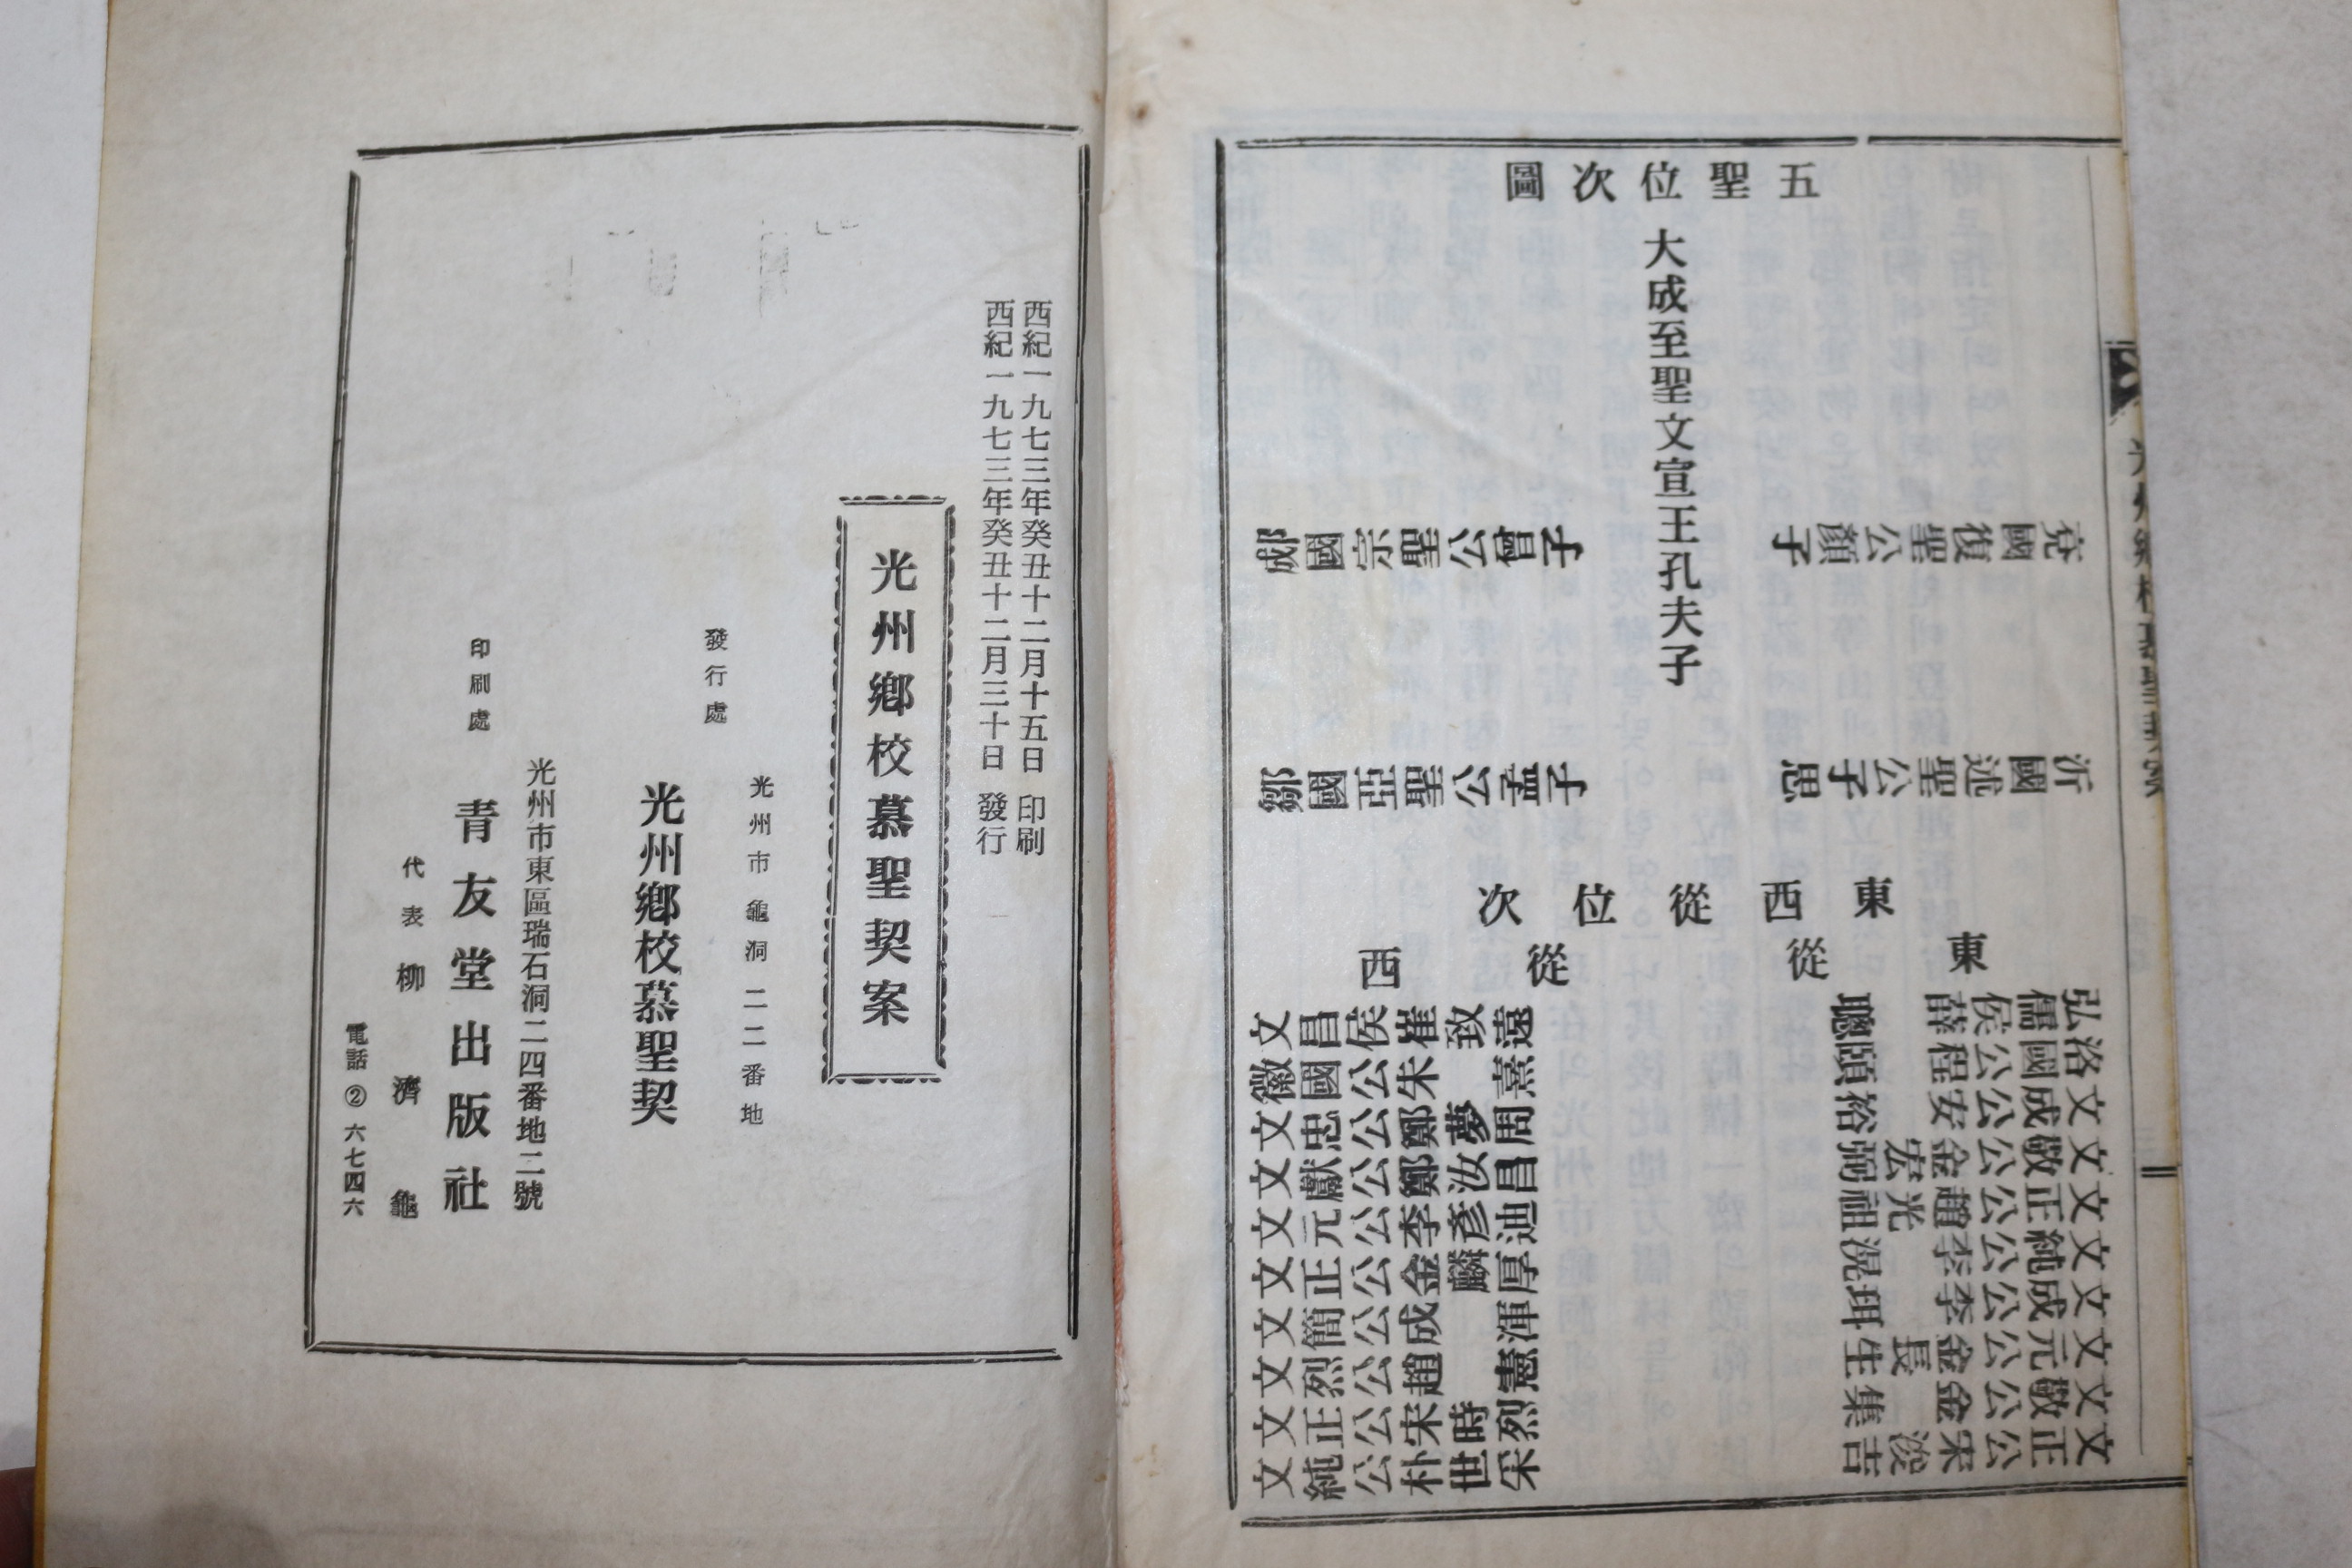 光州鄕校慕聖契案
五聖位次圖
大成至聖文宣王孔夫子
兗國復聖公顏子
沂國述聖公子思
郕國宗聖公曾子
鄒國亞聖公孟子
東西從位次
東從
弘儒侯薛聰
洛國公程頤
文成公安裕
文敬公金宏弼
文正公趙光祖
文純公李滉
文成公李珥
文元公金長生
文敬公金集
文正公宋浚吉
西從
文昌侯崔致遠
徽國公朱熹
文忠公鄭夢周
文獻公鄭汝昌
文元公李彥迪
文正公金麟厚
文簡公成渾
文烈公趙憲
文正公宋時烈
文純公朴世采
西紀一九七三年癸丑十二月十五日 印刷
西紀一九七三年癸丑十二月三十日 發行
光州鄕校慕聖契案
光州市龜洞二二番地
發行處 光州鄕校慕聖契
光州市東區瑞石洞二四番地二號
印刷處 青友堂出版社
代表 柳濟龜
電話②六七四六